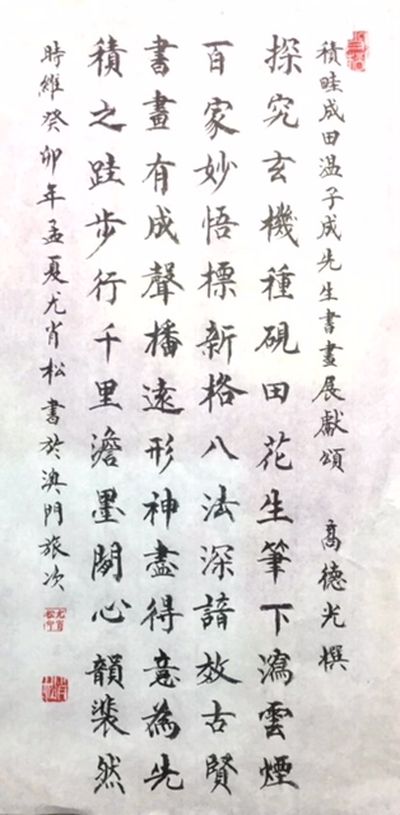 積畦成田温子成先生書畫展獻頌 高德光撰
探究玄機種硯田花生筆下瀉雲煙
百家妙悟標新格八法深諳效古賢
書畫有成聲播遠形神盡得意為先
積之跬步行千里澹墨心韻裴然
時維癸卯年孟夏尤肖松書於澳門旅次